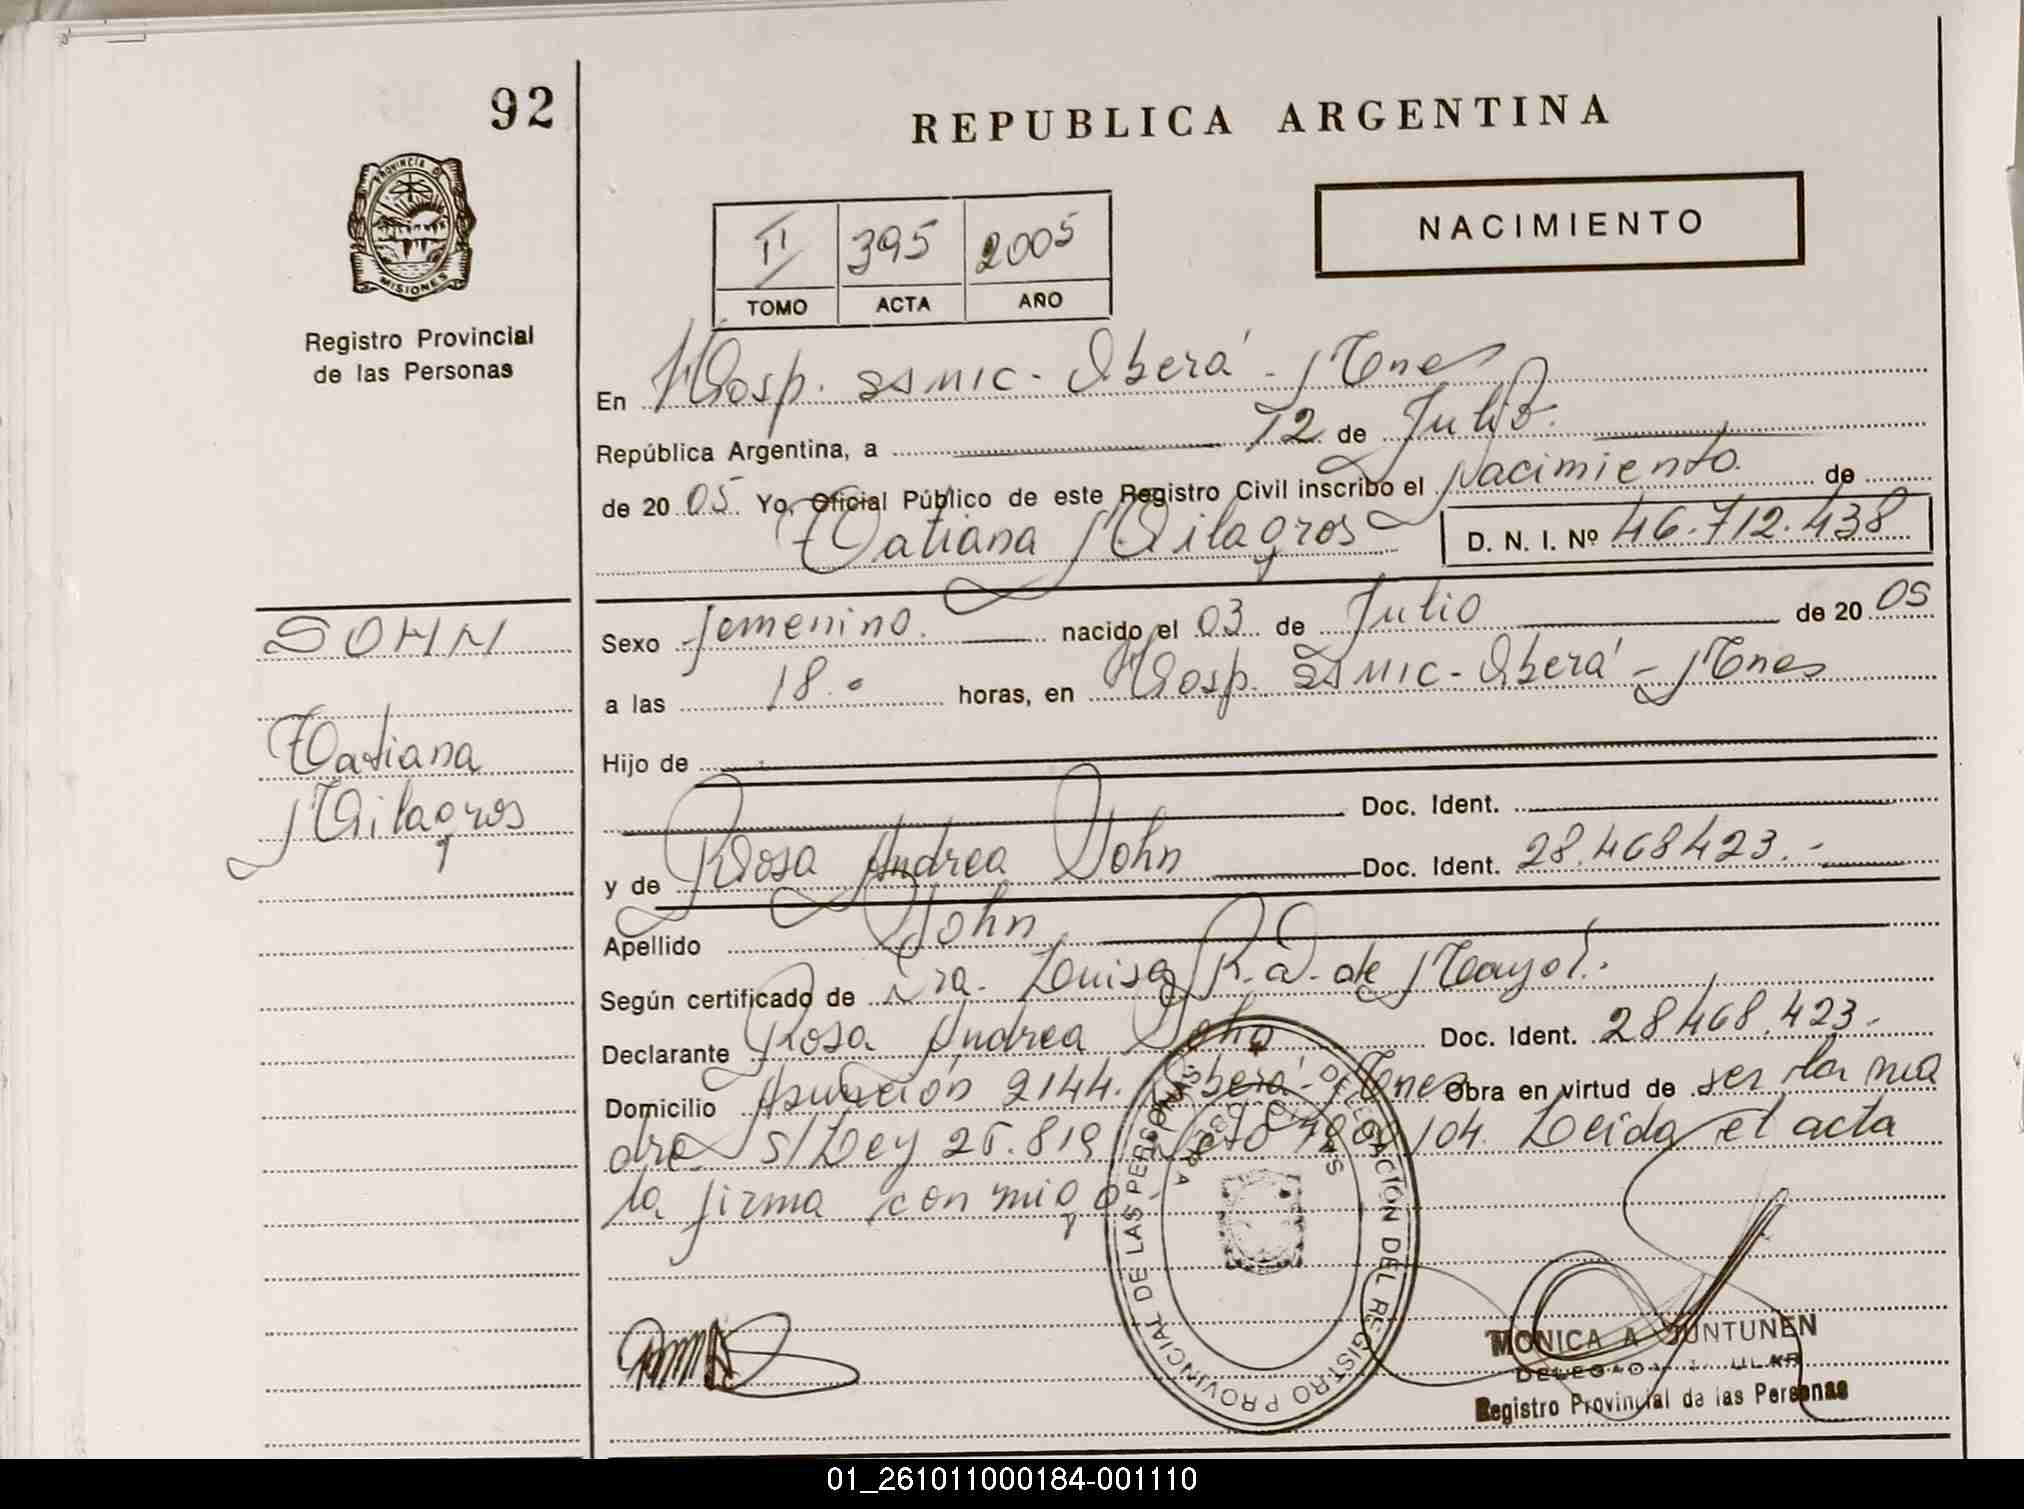 92
REPUBLICA ARGENTINA
PROVINCIA D MISIONES
Registro Provincial
de las Personas
II 395 2005
TOMO ACTA AÑO
NACIMIENTO
En Hosp. SAMIC - Oberá - Mnes
República Argentina, a 12 de Julio.
de 20 05. Yo, Oficial Público de este Registro Civil inscribo el Nacimiento de
Tatiana Milagros D. N. I. Nº 46.712.438
SOHN
Tatiana
Milagros
Sexo femenino. nacido el 03 de Julio de 20 05
a las 18.- horas, en Hosp. SAMIC - Oberá - Mnes
Hijo de
Doc. Ident.
y de Rosa Andrea Sohn Doc. Ident. 28.468423.-
Apellido Sohn
Según certificado de Dra. Luisa R. de
Declarante Rosa Andrea Sohn Doc. Ident. 28468.423.-
Domicilio Asunción 2144. Oberá - Mnes Obra en virtud de ser la ma
dre s/Ley 25.819 /04. Leida el acta
la firma conmigo.
DELEGACIÓN DEL REGISTRO PROVINCIAL DE LAS PERSONAS
MONICA A JUNTUNEN
Registro Provincial de las Personas
01_261011000184-001110